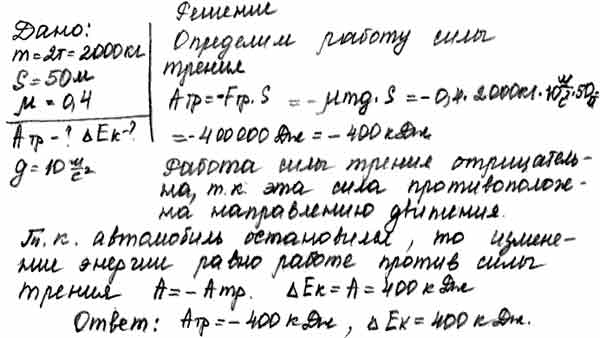 Дано:
m=2т=2000кг
S=50м
μ=0,4
Aтр-? ΔEк-?
g=10 м/с²
Решение
Определим работу силы
трения
Aтр=-Fтр.S = -μmg.S = -0,4.2000кг.10 м/с².50м
=-400000Дж=-400кДж
Работа силы трения отрицатель-
на, т.к. эта сила противополож-
на направлению движения.
Т.к. автомобиль остановился, то измене-
ние энергии равно работе против силы
трения A=-Aтр. ΔEк=A=400кДж
Ответ: Aтр=-400кДж, ΔEк=400кДж.